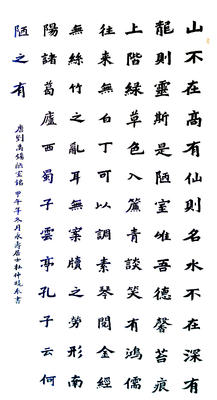 山不在高有仙則名水不在深有
龍則靈斯是陋室唯吾德馨苔痕
上階綠草色入簾青談笑有鴻儒
往來無白丁可以調素琴閱金經
無絲竹之亂耳無案牘之勞形南
陽諸葛廬西蜀子雲亭孔子云何
陋之有
唐劉禹錫陋室銘 甲午年冬月永壽居士杜仲書